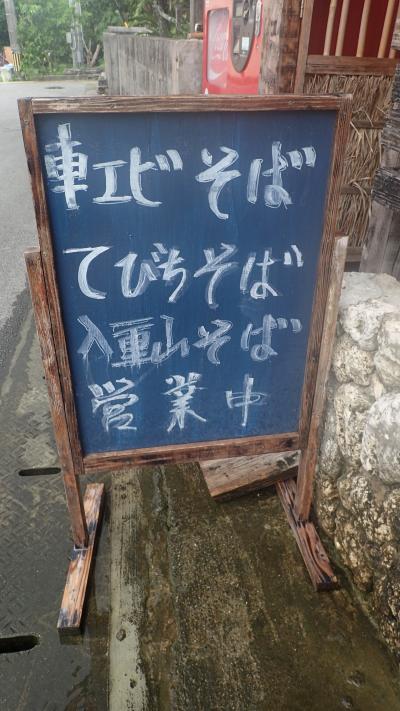 車エビそば
てびちそば
八重山そば
営業中